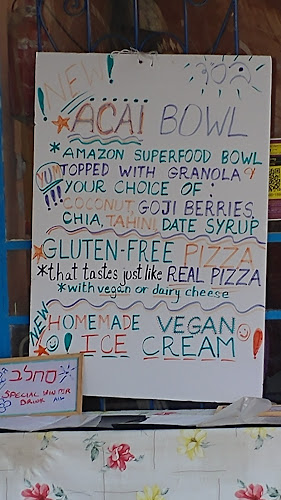 NEW!
ACAI BOWL
* AMAZON SUPERFOOD BOWL
YUM!!! TOPPED WITH GRANOLA &
YOUR CHOICE OF:
COCONUT, GOJI BERRIES,
CHIA, TAHINI, DATE SYRUP
GLUTEN-FREE PIZZA
*that tastes just like REAL PIZZA
*with vegan or dairy cheese
NEW HOMEMADE VEGAN
ICE CREAM!
סחלב
SPECIAL WINTER
DRINK